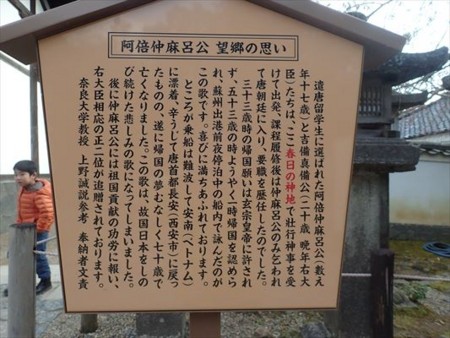 阿倍仲麻呂公 望郷の思い
遣唐留学生に選ばれた阿倍仲麻呂公(数え
年十七歳)と吉備真備公(二十歳 晩年右大
臣)たちは、ここ春日の神地で壮行神事を受
けて出発、課程履修後は仲麻呂公のみ乞われ
て唐朝廷に入り、要職を歴任したのでした。
三十三歳時の帰国願いは玄宗皇帝に許され
ず、五十三歳の時ようやく一時帰国を認めら
れ、蘇州出港前夜停泊中の船内で詠んだのが
この歌です。喜びに満ちあふれております。
ところが乗船は難波して安南(ベトナム)
に漂着、辛うじて唐首都長安(西安市)に戻っ
たものの、遂に帰国の夢むなしく七十歳で
亡くなりました。この歌は、故国日本をしの
び続けた悲しみの歌になってしまいました。
後に仲麻呂公には祖国貢献の功労に報い、
右大臣相応の正二位が追贈されております。
奈良大学教授 上野誠説参考 奉納者文責